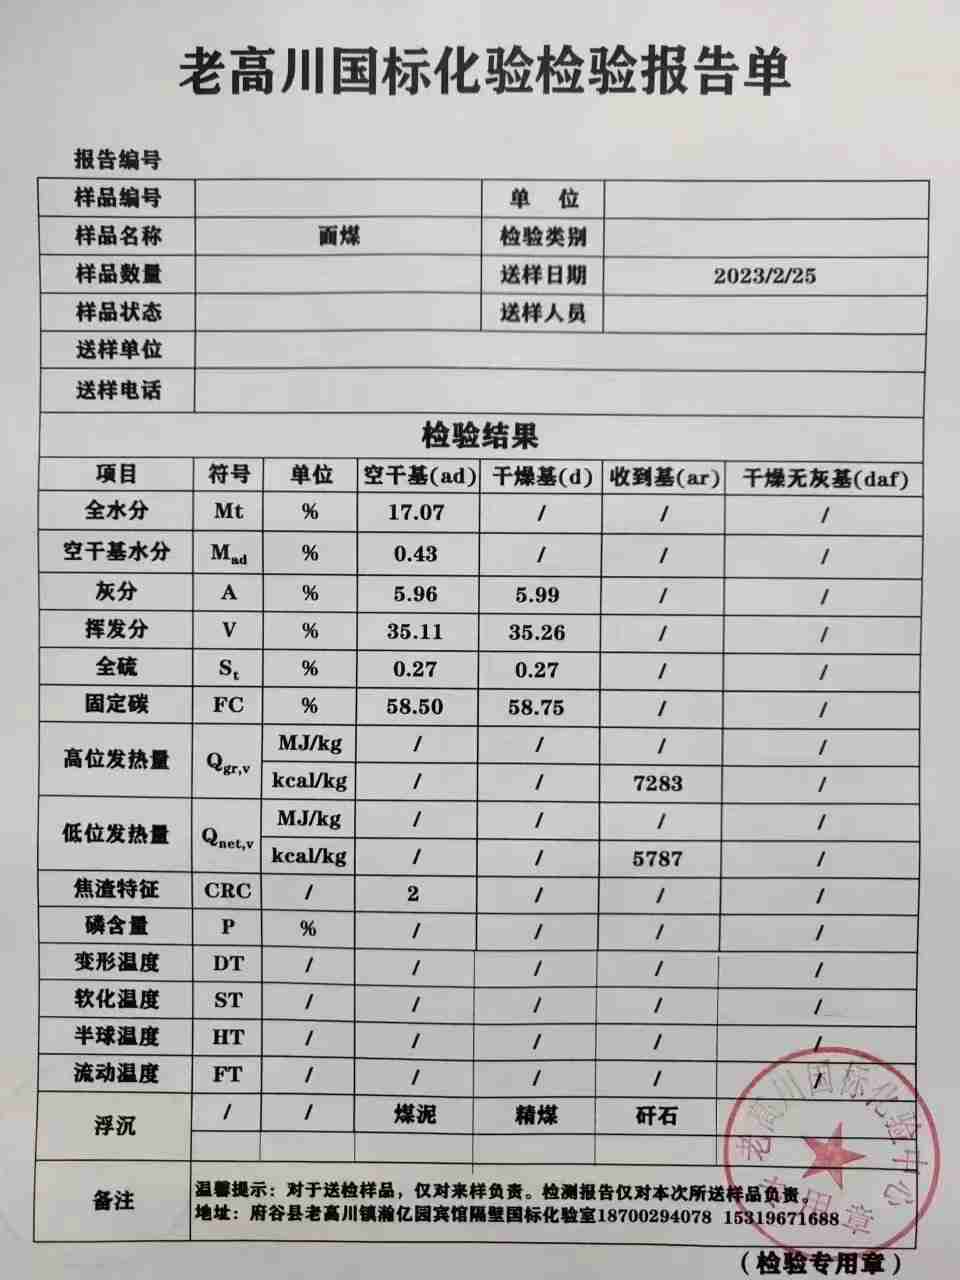 老高川国标化验检验报告单
报告编号
样品编号 单 位
样品名称 面煤 检验类别
样品数量 送样日期 2023/2/25
样品状态 送样人员
送样单位
送样电话
检验结果
项目 符号 单位 空干基(ad) 干燥基(d) 收到基(ar) 干燥无灰基(daf)
全水分 Mt % 17.07 / / /
空干基水分 Mad % 0.43 / / /
灰分 A % 5.96 5.99 / /
挥发分 V % 35.11 35.26 / /
全硫 St % 0.27 0.27 / /
固定碳 FC % 58.50 58.75 / /
高位发热量 Qgr,v MJ/kg / / / /
kcal/kg / / 7283 /
低位发热量 Qnet,v MJ/kg / / / /
kcal/kg / / 5787 /
焦渣特征 CRC / 2 / / /
磷含量 P % / / / /
变形温度 DT / / / / /
软化温度 ST / / / / /
半球温度 HT / / / / /
流动温度 FT / / / / /
浮沉 / / 煤泥 精煤 矸石
老高川国标化验中心
专用章
备注 温馨提示：对于送检样品，仅对来样负责。检测报告仅对本次所送样品负责。
地址：府谷县老高川镇瀚亿园宾馆隔壁国标化验室18700294078 15319671688
（检验专用章）